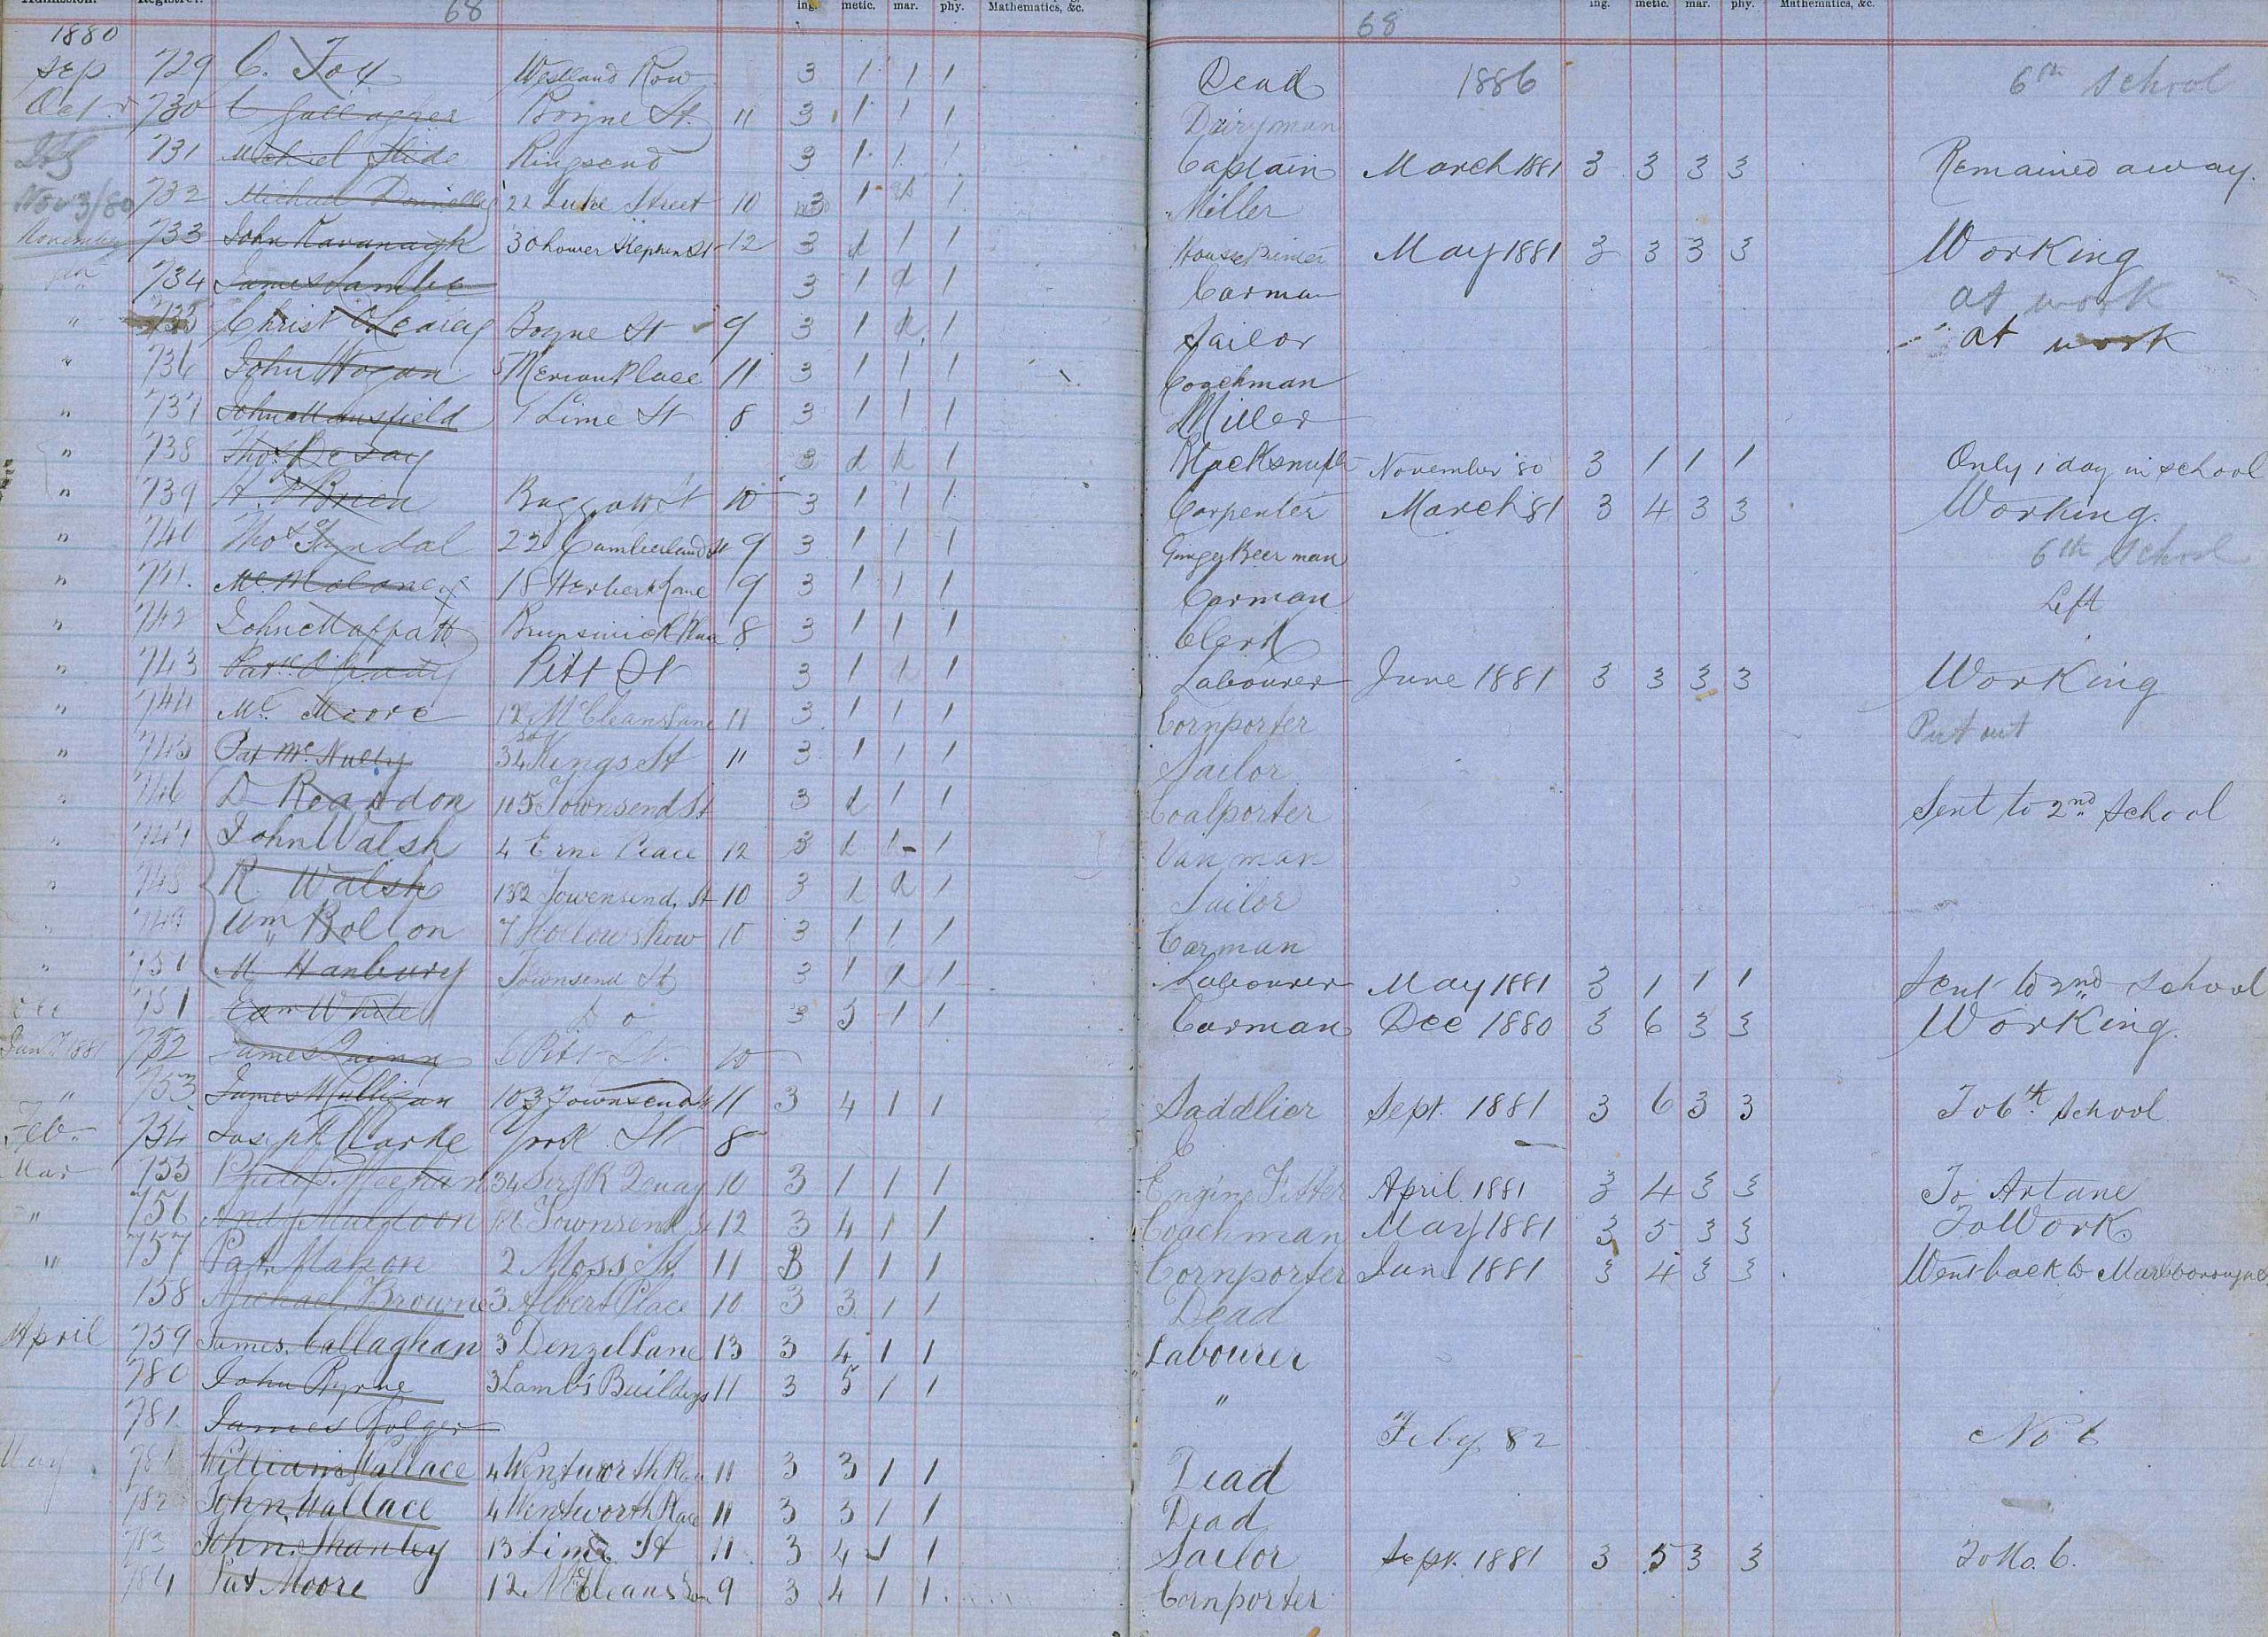 Admission. Register. ing. metic. mar. phy. Mathematics, &c. ing. metic. mar. phy. Mathematics, &c.
68 68
1880
Sep 729 C. Foy Westland Row 3 1 1 1 Dead 1886 6th School
Oct 730 C Gallagher Boyne St. 11 3 1 1 1 Dairyman
731 Michiel Slide Ringsend 3 1 1 1 Captain March 1881 3 3 3 3 Remained away.
Nov 3/80 732 Michael Donnelly 22 Luke Street 10 3 1 1 Miller
November 733 John Kavanagh 30 Lower Stephen St 12 3 2 1 1 House Painter May 1881 3 3 3 3 Working
" 734 James Lambe 3 1 2 1 Carman at work
" 735 Christ O'Leary Boyne St 9 3 1 2 1 Sailor at work
" 736 John Hogan 5 Merion Place 11 3 1 1 1 Coachman
" 737 John Mansfield 1 Lime St 8 3 1 1 1 Miller
" 738 Thos. 3 2 2 1 Blacksmith November '80 3 1 1 1 Only 1 day in school
" 739 H. O'Brien Baggott St 10 3 1 1 1 Carpenter March 81 3 4 3 3 Working.
" 740 Thos Tyndal 22 Cumberland St 9 3 1 1 1 Ginger Beer man 6th School
" 741. Ml. Malone 18 Herbert Lane 9 3 1 1 1 Carman Left
" 742 John Moffatt Brunswick Place 8 3 1 1 1 Clerk
" 743 Patk O'Grady Pitt St 3 1 2 1 Labourer June 1881 3 3 3 3 Working
" 744 Ml. Moore 12 McCleans Lane 11 3 1 1 1 Cornporter Put out
" 745 Pat McNully 34 Kings St 11 3 1 1 1 Sailor
" 746 D Reardon 105 Townsend St 3 2 1 1 Coalporter Sent to 2nd School
" 747 John Walsh 4 Erne Place 12 3 2 1 Van man
" 748 R. Walsh 132 Townsend St 10 3 2 2 1 Sailor
" 749 Wm Bolton 7 Hollows Row 10 3 1 1 1 Carman
" 751 M Hanbury Townsend St 3 1 2 1 Labourer May 1881 3 1 1 1 Sent to 2nd School
Dec 751 Edw White Do 3 3 1 1 Carman Dec 1880 3 6 3 3 Working.
Jany 1881 752 James Quinn 6 Pitt St. 10
" 753 James Mulligan 103 Townsend St 11 3 4 1 1 Saddlier Sept. 1881 3 6 3 3 To 6th School
Feb. 754 Joseph Clarke York St 8
Mar 755 Philip Meehan 34 Sir J R Quay 10 3 1 1 1 Engine Fitter April 1881 3 4 3 3 To Artane
" 756 Andy Muldoon Townsend St 12 3 4 1 1 Coachman May 1881 3 5 3 3 To Work
" 757 Pat. Mahon 2 Moss St 11 3 1 1 1 Cornporter June 1881 3 4 3 3 Went back to Marlborough
758 Michael Browne 3 Albert Place 10 3 3 1 1 Dead
April 759 James. Callaghan 3 Denzel Lane 13 3 4 1 1 Labourer
780 John Byrne 3 Lambs Buildings 11 3 5 1 1 "
781 James Bolger Feby 82 No 6
May 781 William Wallace 4 Wentworth Place 11 3 3 1 1 Dead
782 John Wallace 4 Wentworth Place 11 3 3 1 1 Dead
783 John Shanley 13 Lime St 11 3 4 1 1 Sailor Sept. 1881 3 5 3 3 To No. 6.
784 Pat Moore 12 McCleans Lane 9 3 4 1 1 Cornporter